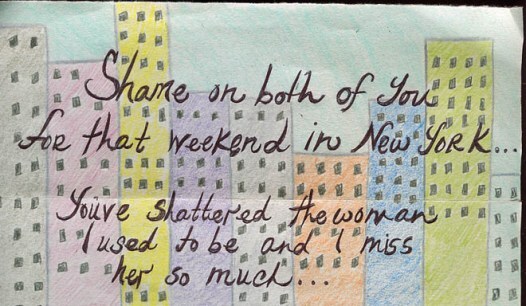 Shame on both of You
for that weekend in New York...
You've shattered the woman
I used to be and I miss
her so much...